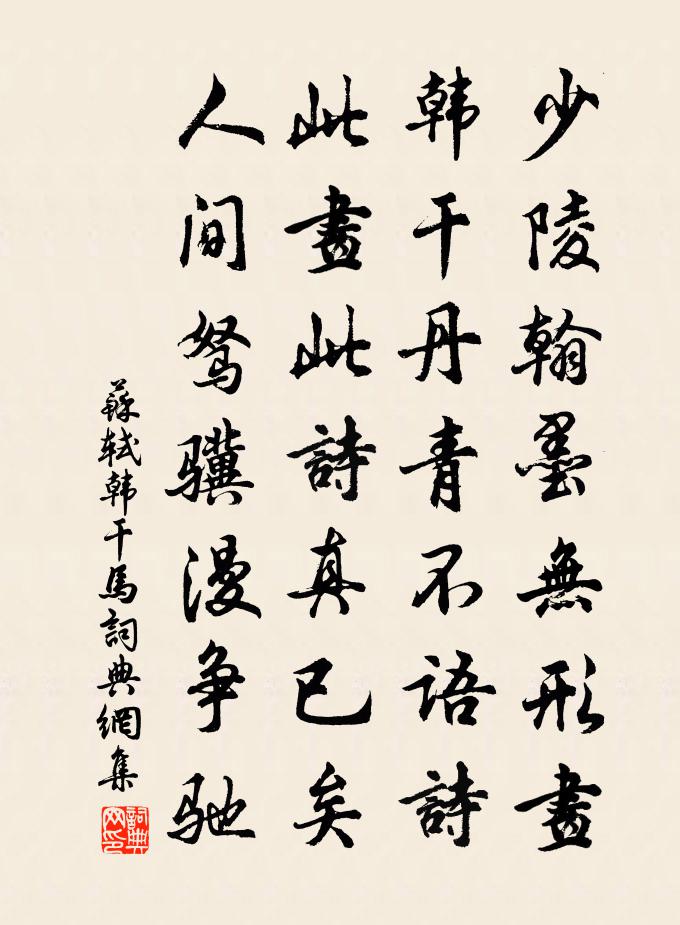 少陵翰墨無形畫
韩干丹青不语詩
此畫此詩真已矣
人间驽骥漫争驰
蘇轼韩干馬詞典網集
詞典網印